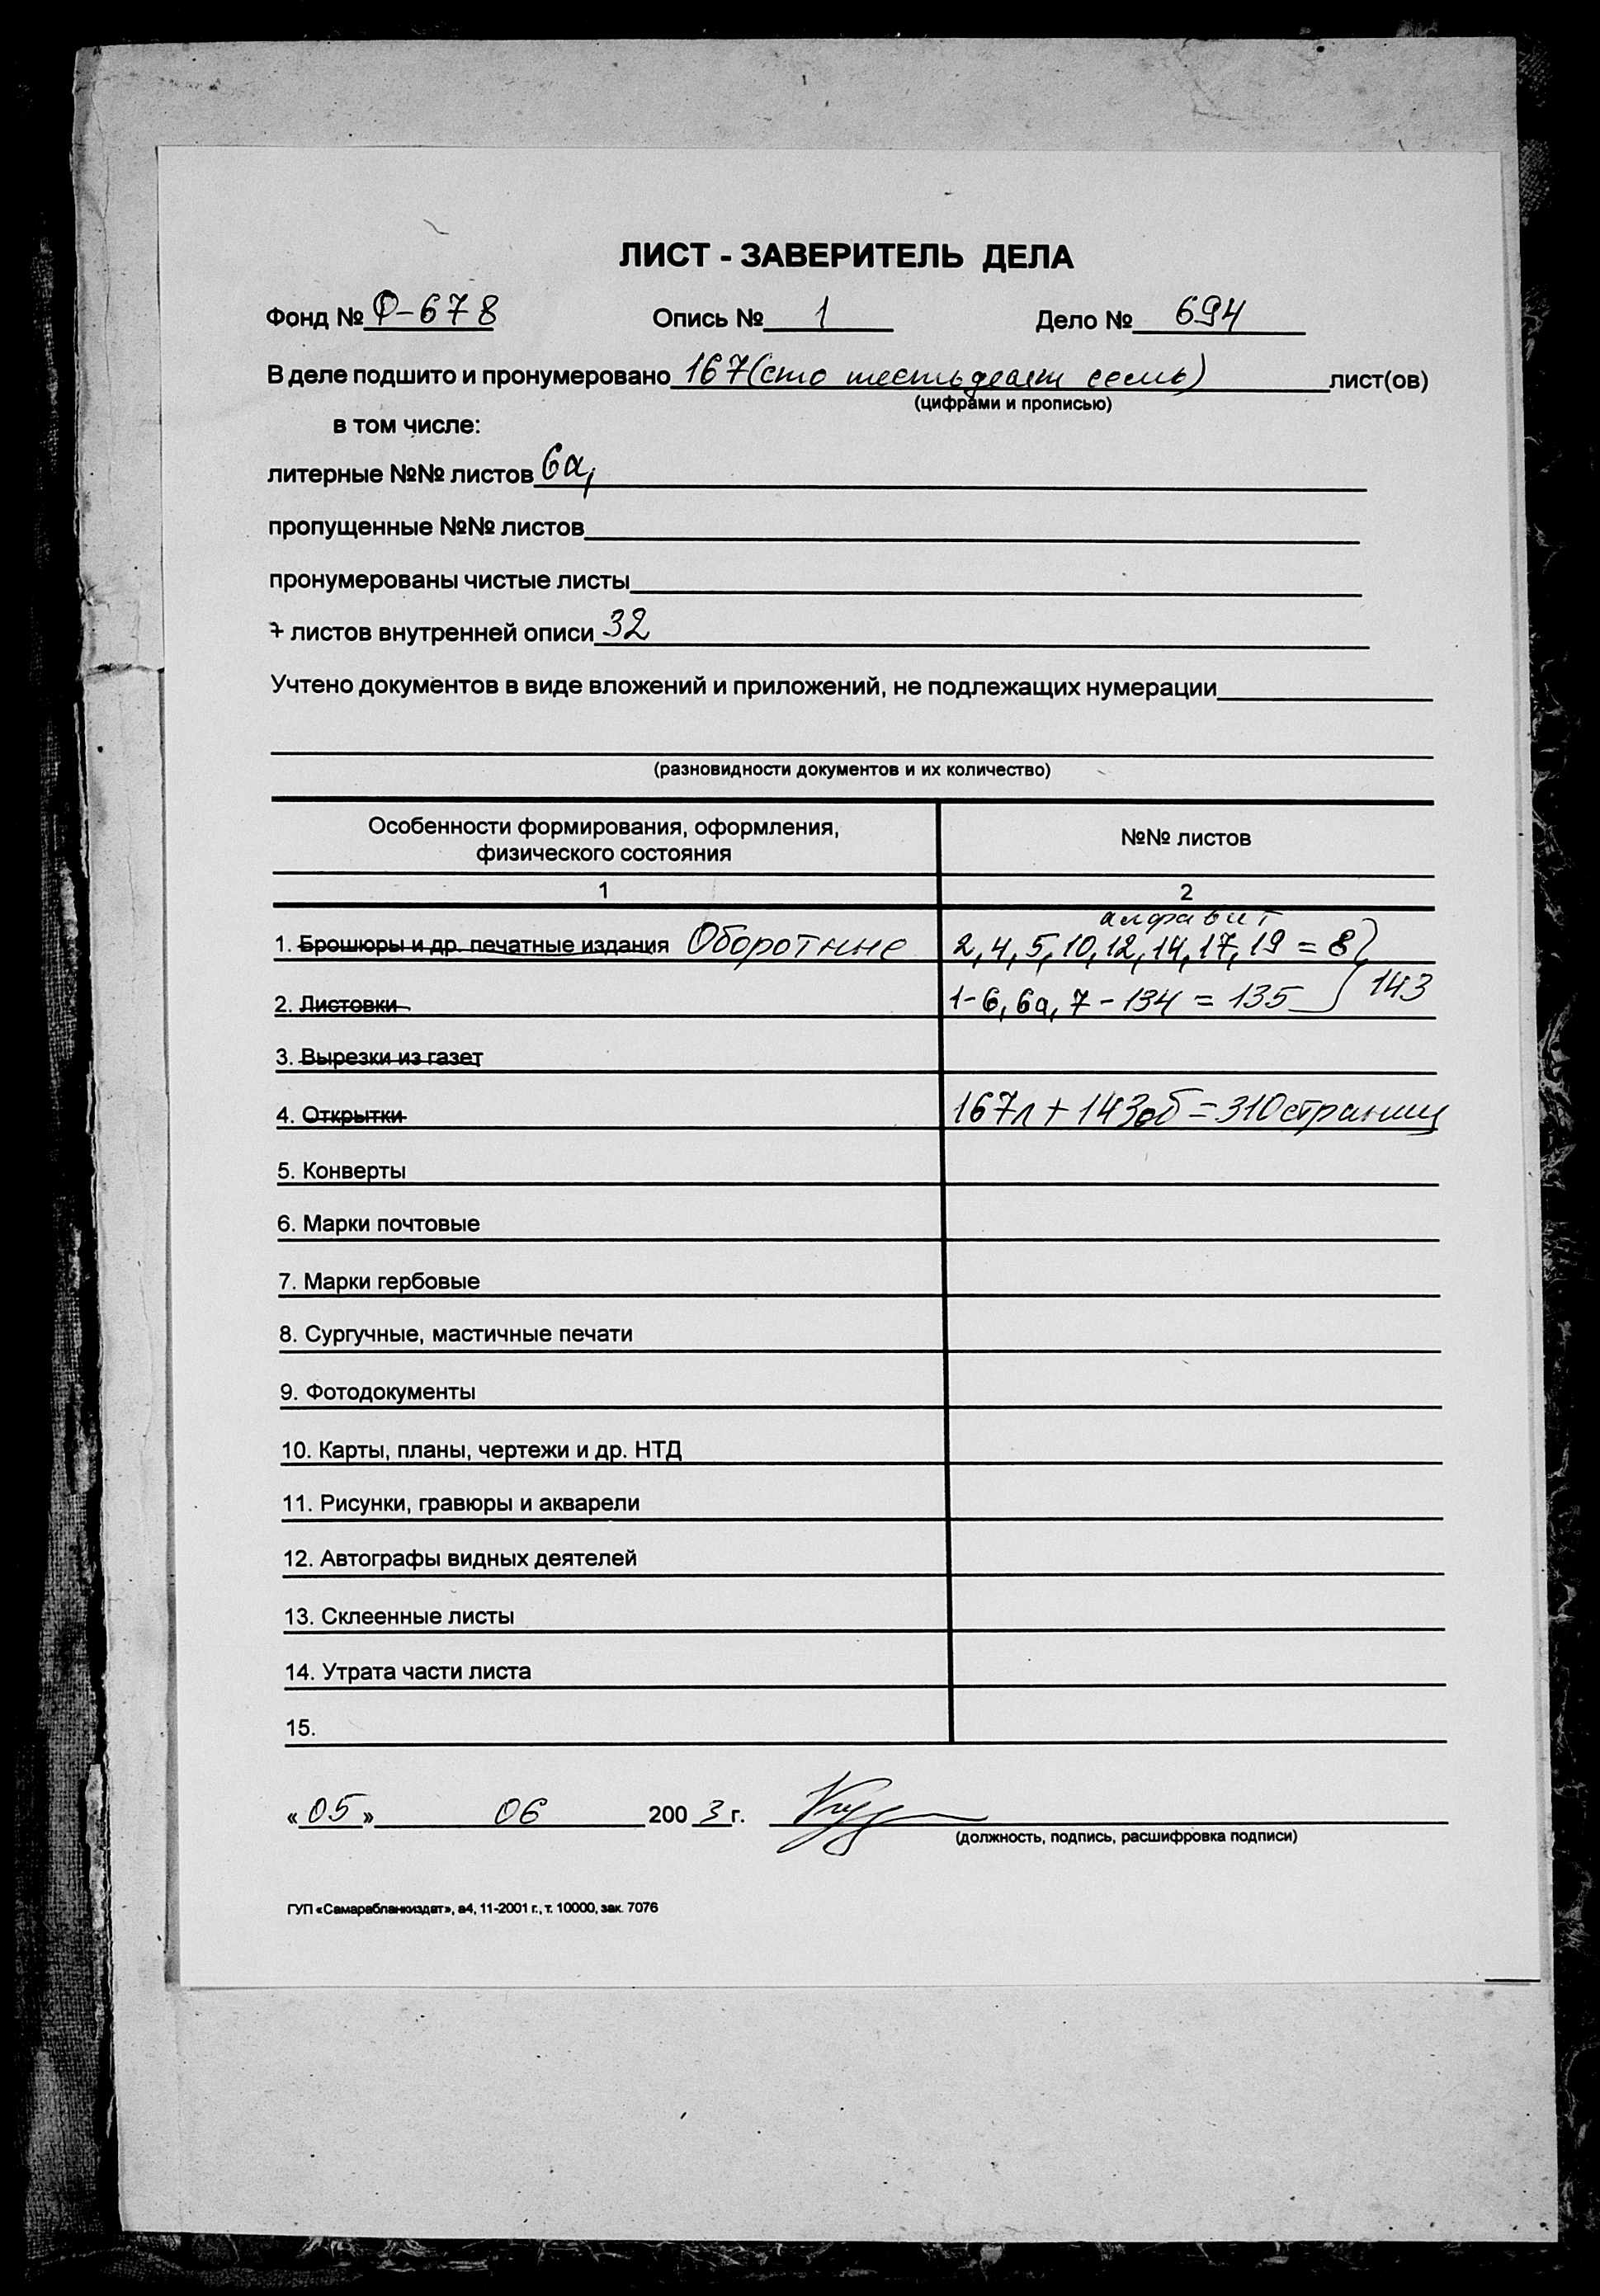 ЛИСТ - ЗАВЕРИТЕЛЬ ДЕЛА
Фонд № Ф-678 Опись № 1 Дело № 694
В деле подшито и пронумеровано 167 (сто шестьдесят семь) лист(ов)
(цифрами и прописью)
в том числе:
литерные №№ листов 6а,
пропущенные №№ листов
пронумерованы чистые листы
+ листов внутренней описи 32
Учтено документов в виде вложений и приложений, не подлежащих нумерации
(разновидности документов и их количество)
Особенности формирования, оформления, №№ листов
физического состояния
1 2
алфавит
1. Брошюры и др. печатные издания Оборотные 2, 4, 5, 10, 12, 14, 17, 19 = 8
2. Листовки 1-6, 6а, 7 - 134 = 135 } 143
3. Вырезки из газет
4. Открытки 167л + 143об = 310 страниц
5. Конверты
6. Марки почтовые
7. Марки гербовые
8. Сургучные, мастичные печати
9. Фотодокументы
10. Карты, планы, чертежи и др. НТД
11. Рисунки, гравюры и акварели
12. Автографы видных деятелей
13. Склеенные листы
14. Утрата части листа
15.
«05» 06 2003 г.
(должность, подпись, расшифровка подписи)
ГУП «Самарабланкиздат», а4, 11-2001 г., т. 10000, зак. 7076